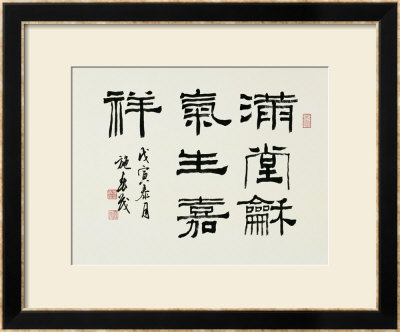 滿堂龢
氣生嘉
祥
戊寅春月
施